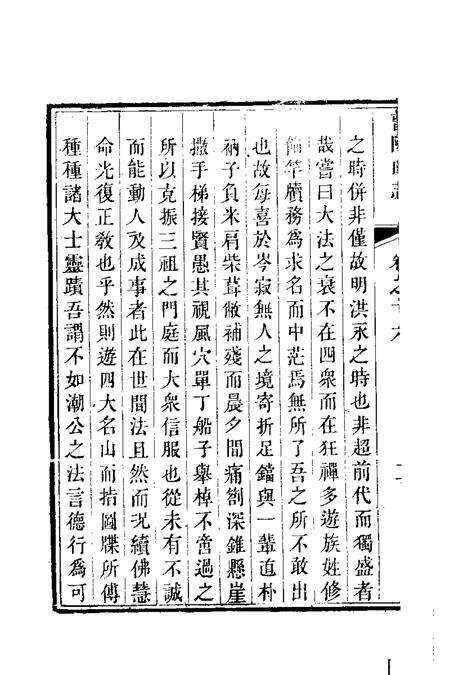 之時併非僅故明洪永之時也非超前代而獨盛者
哉嘗曰大法之衰不在四衆而在狂禪多遊族姓修
竿牘務為求名而中茫焉無所了吾之所不敢出
也故每喜於岑寂無人之境寄折足鐺與一輩直朴
衲子負米肩柴葺敝補殘而晨夕間痛劄深錐懸崖
撒手梯接賢愚其視風穴單丁船子舉棹不啻過之
所以克振三祖之門庭而大衆信服也從未有不誠
而能動人及成事者此在世間法且然而況續佛慧
命光復正教也乎然則遊四大名山而拈圖牒所傳
種種諸大士靈蹟吾謂不如潮公之法言德行為可
卷之十六